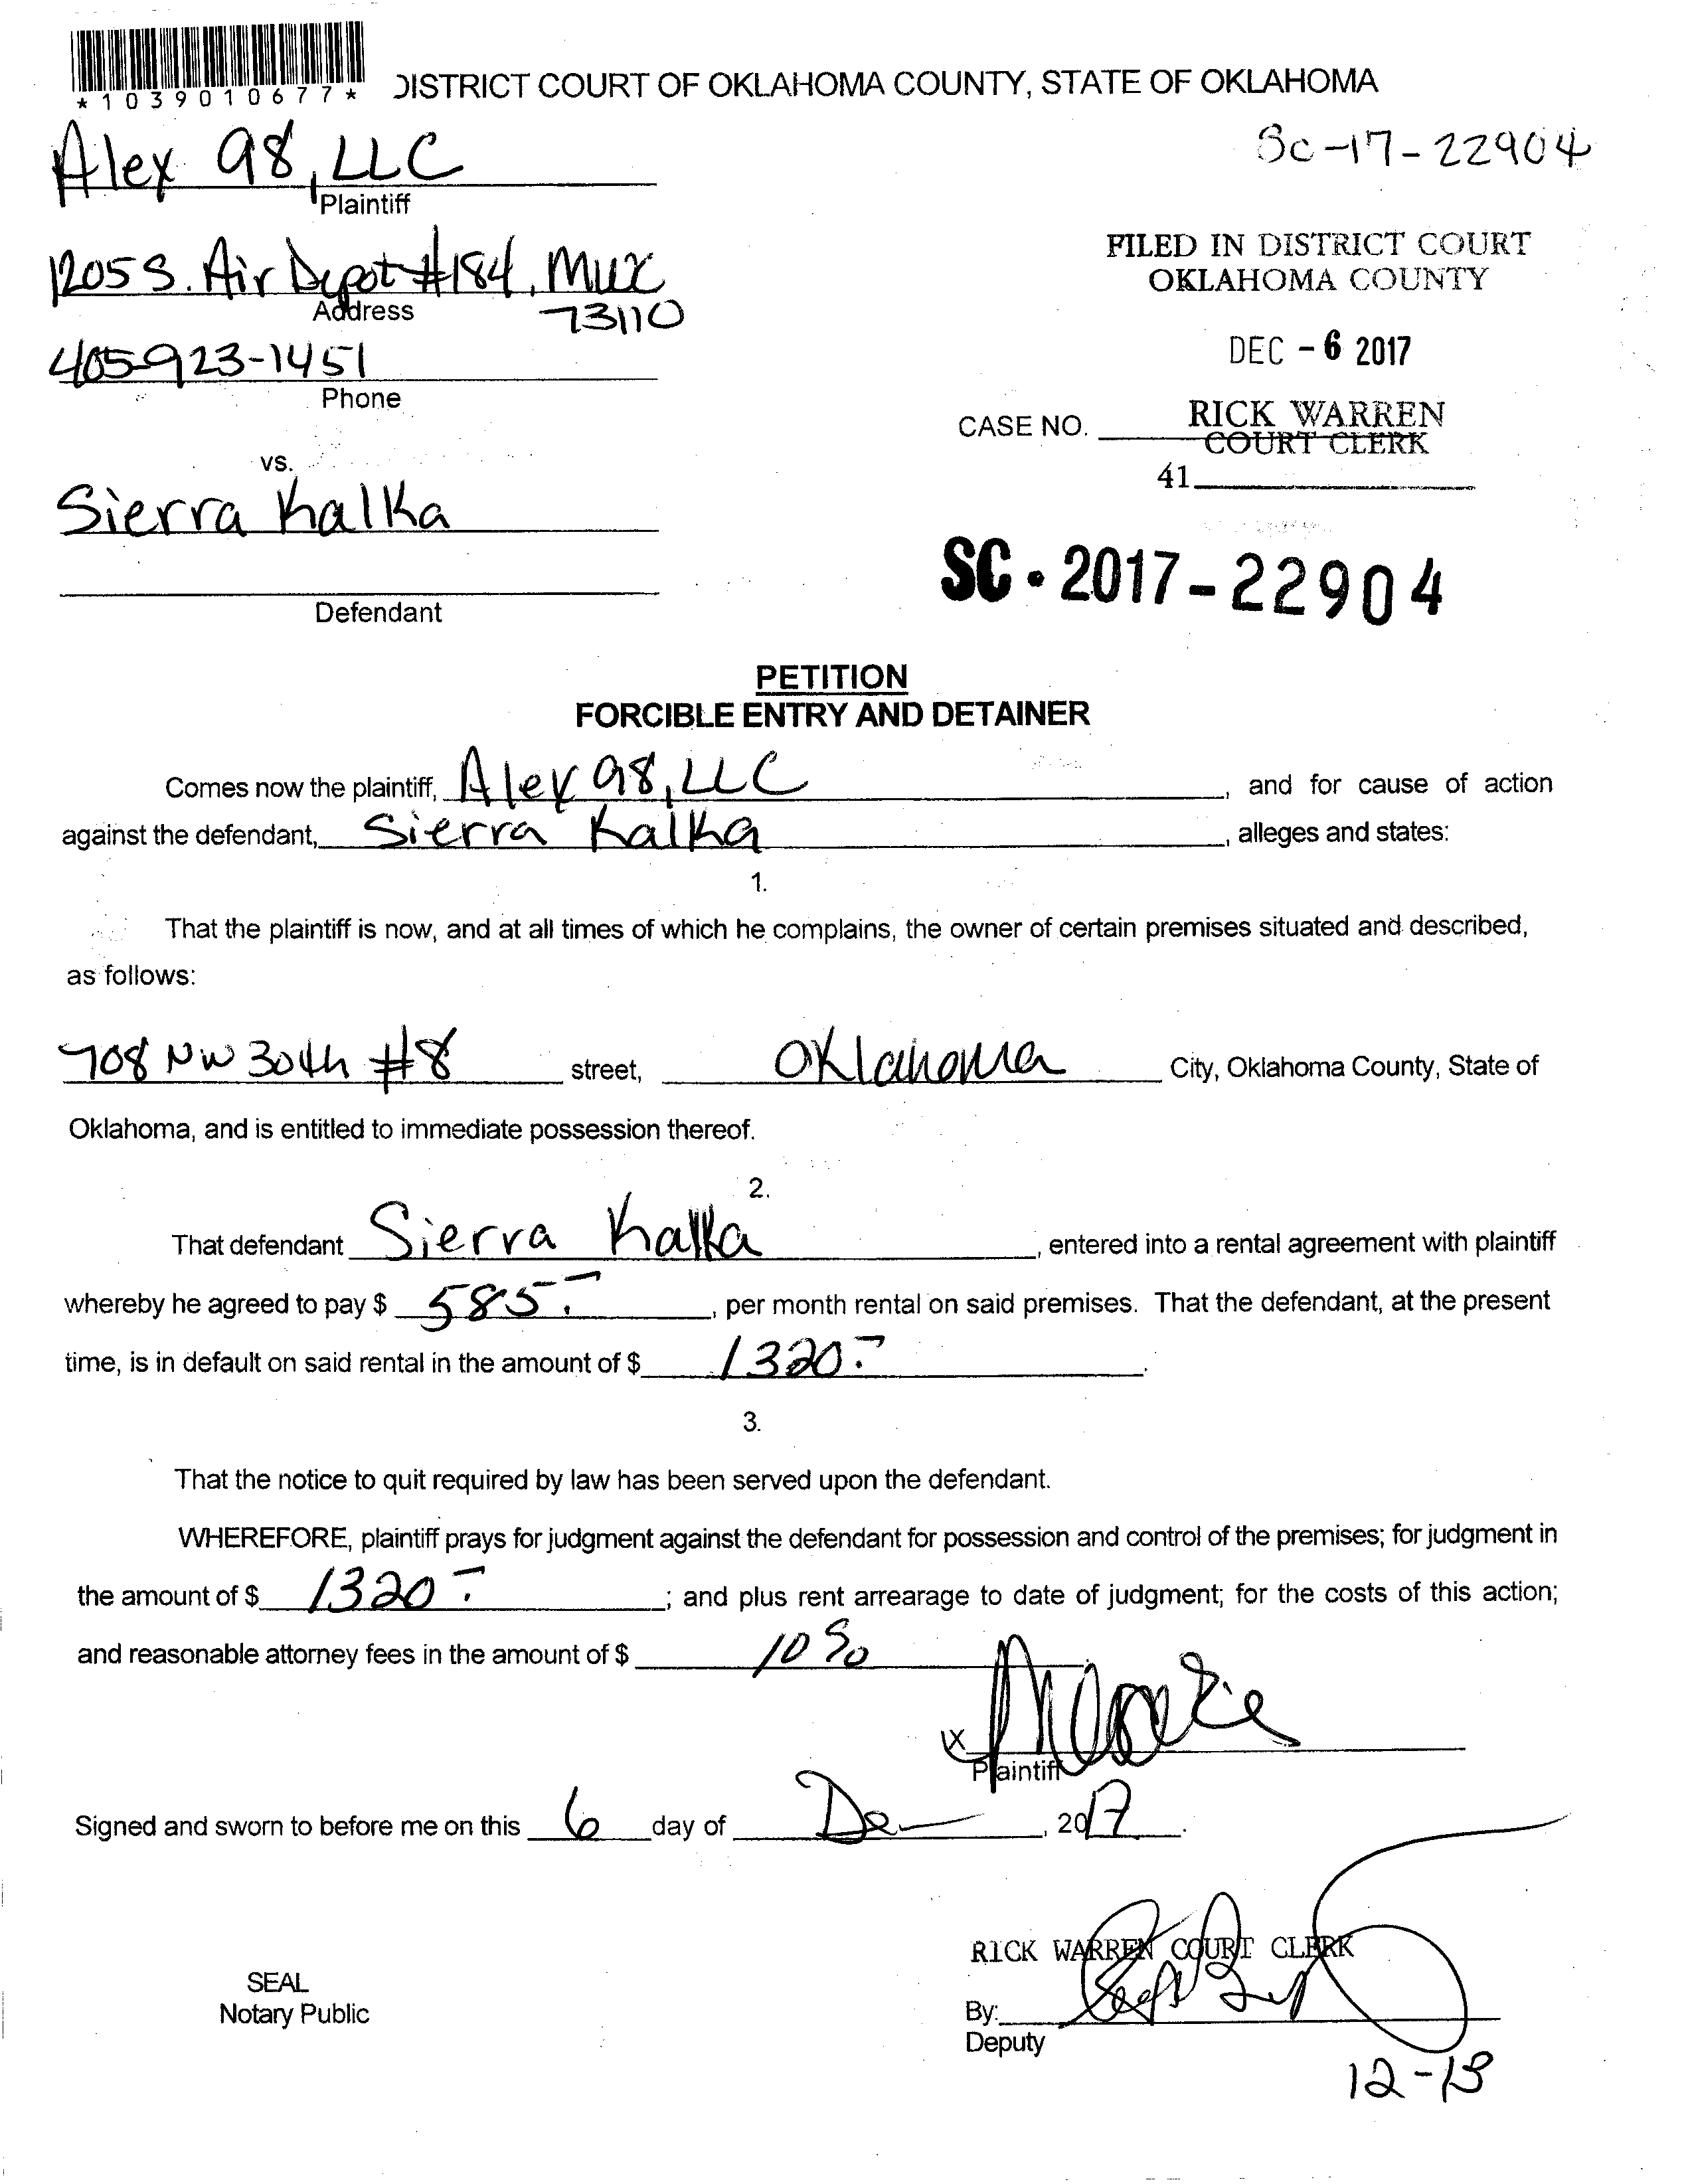 *1039010677*
DISTRICT COURT OF OKLAHOMA COUNTY, STATE OF OKLAHOMA
Alex 98, LLC
SC-17-22904
Plaintiff
1205 S. Air Depot #184, MWC
Address
73110
FILED IN DISTRICT COURT
OKLAHOMA COUNTY
DEC - 6 2017
405-923-1451
Phone
RICK WARREN
CASE NO.
COURT CLERK
41
vs.
Sierra Kalka
Defendant
SC - 2017-22904
PETITION
FORCIBLE ENTRY AND DETAINER
Comes now the plaintiff, Alex 98, LLC, and for cause of action
against the defendant, Sierra Kalka, alleges and states:
1.
That the plaintiff is now, and at all times of which he complains, the owner of certain premises situated and described,
as follows:
708 NW 30th #8 street, Oklahoma City, Oklahoma County, State of
Oklahoma, and is entitled to immediate possession thereof.
2.
That defendant Sierra Kalka, entered into a rental agreement with plaintiff
whereby he agreed to pay $ 585.-, per month rental on said premises. That the defendant, at the present
time, is in default on said rental in the amount of $ 1320.-.
3.
That the notice to quit required by law has been served upon the defendant.
WHEREFORE, plaintiff prays for judgment against the defendant for possession and control of the premises; for judgment in
the amount of $ 1320.-; and plus rent arrearage to date of judgment; for the costs of this action;
and reasonable attorney fees in the amount of $ 10%.
X
Plaintiff
Signed and sworn to before me on this 6 day of De, 2017.
RICK WARREN COURT CLERK
SEAL
Notary Public
By:
Deputy
12-13